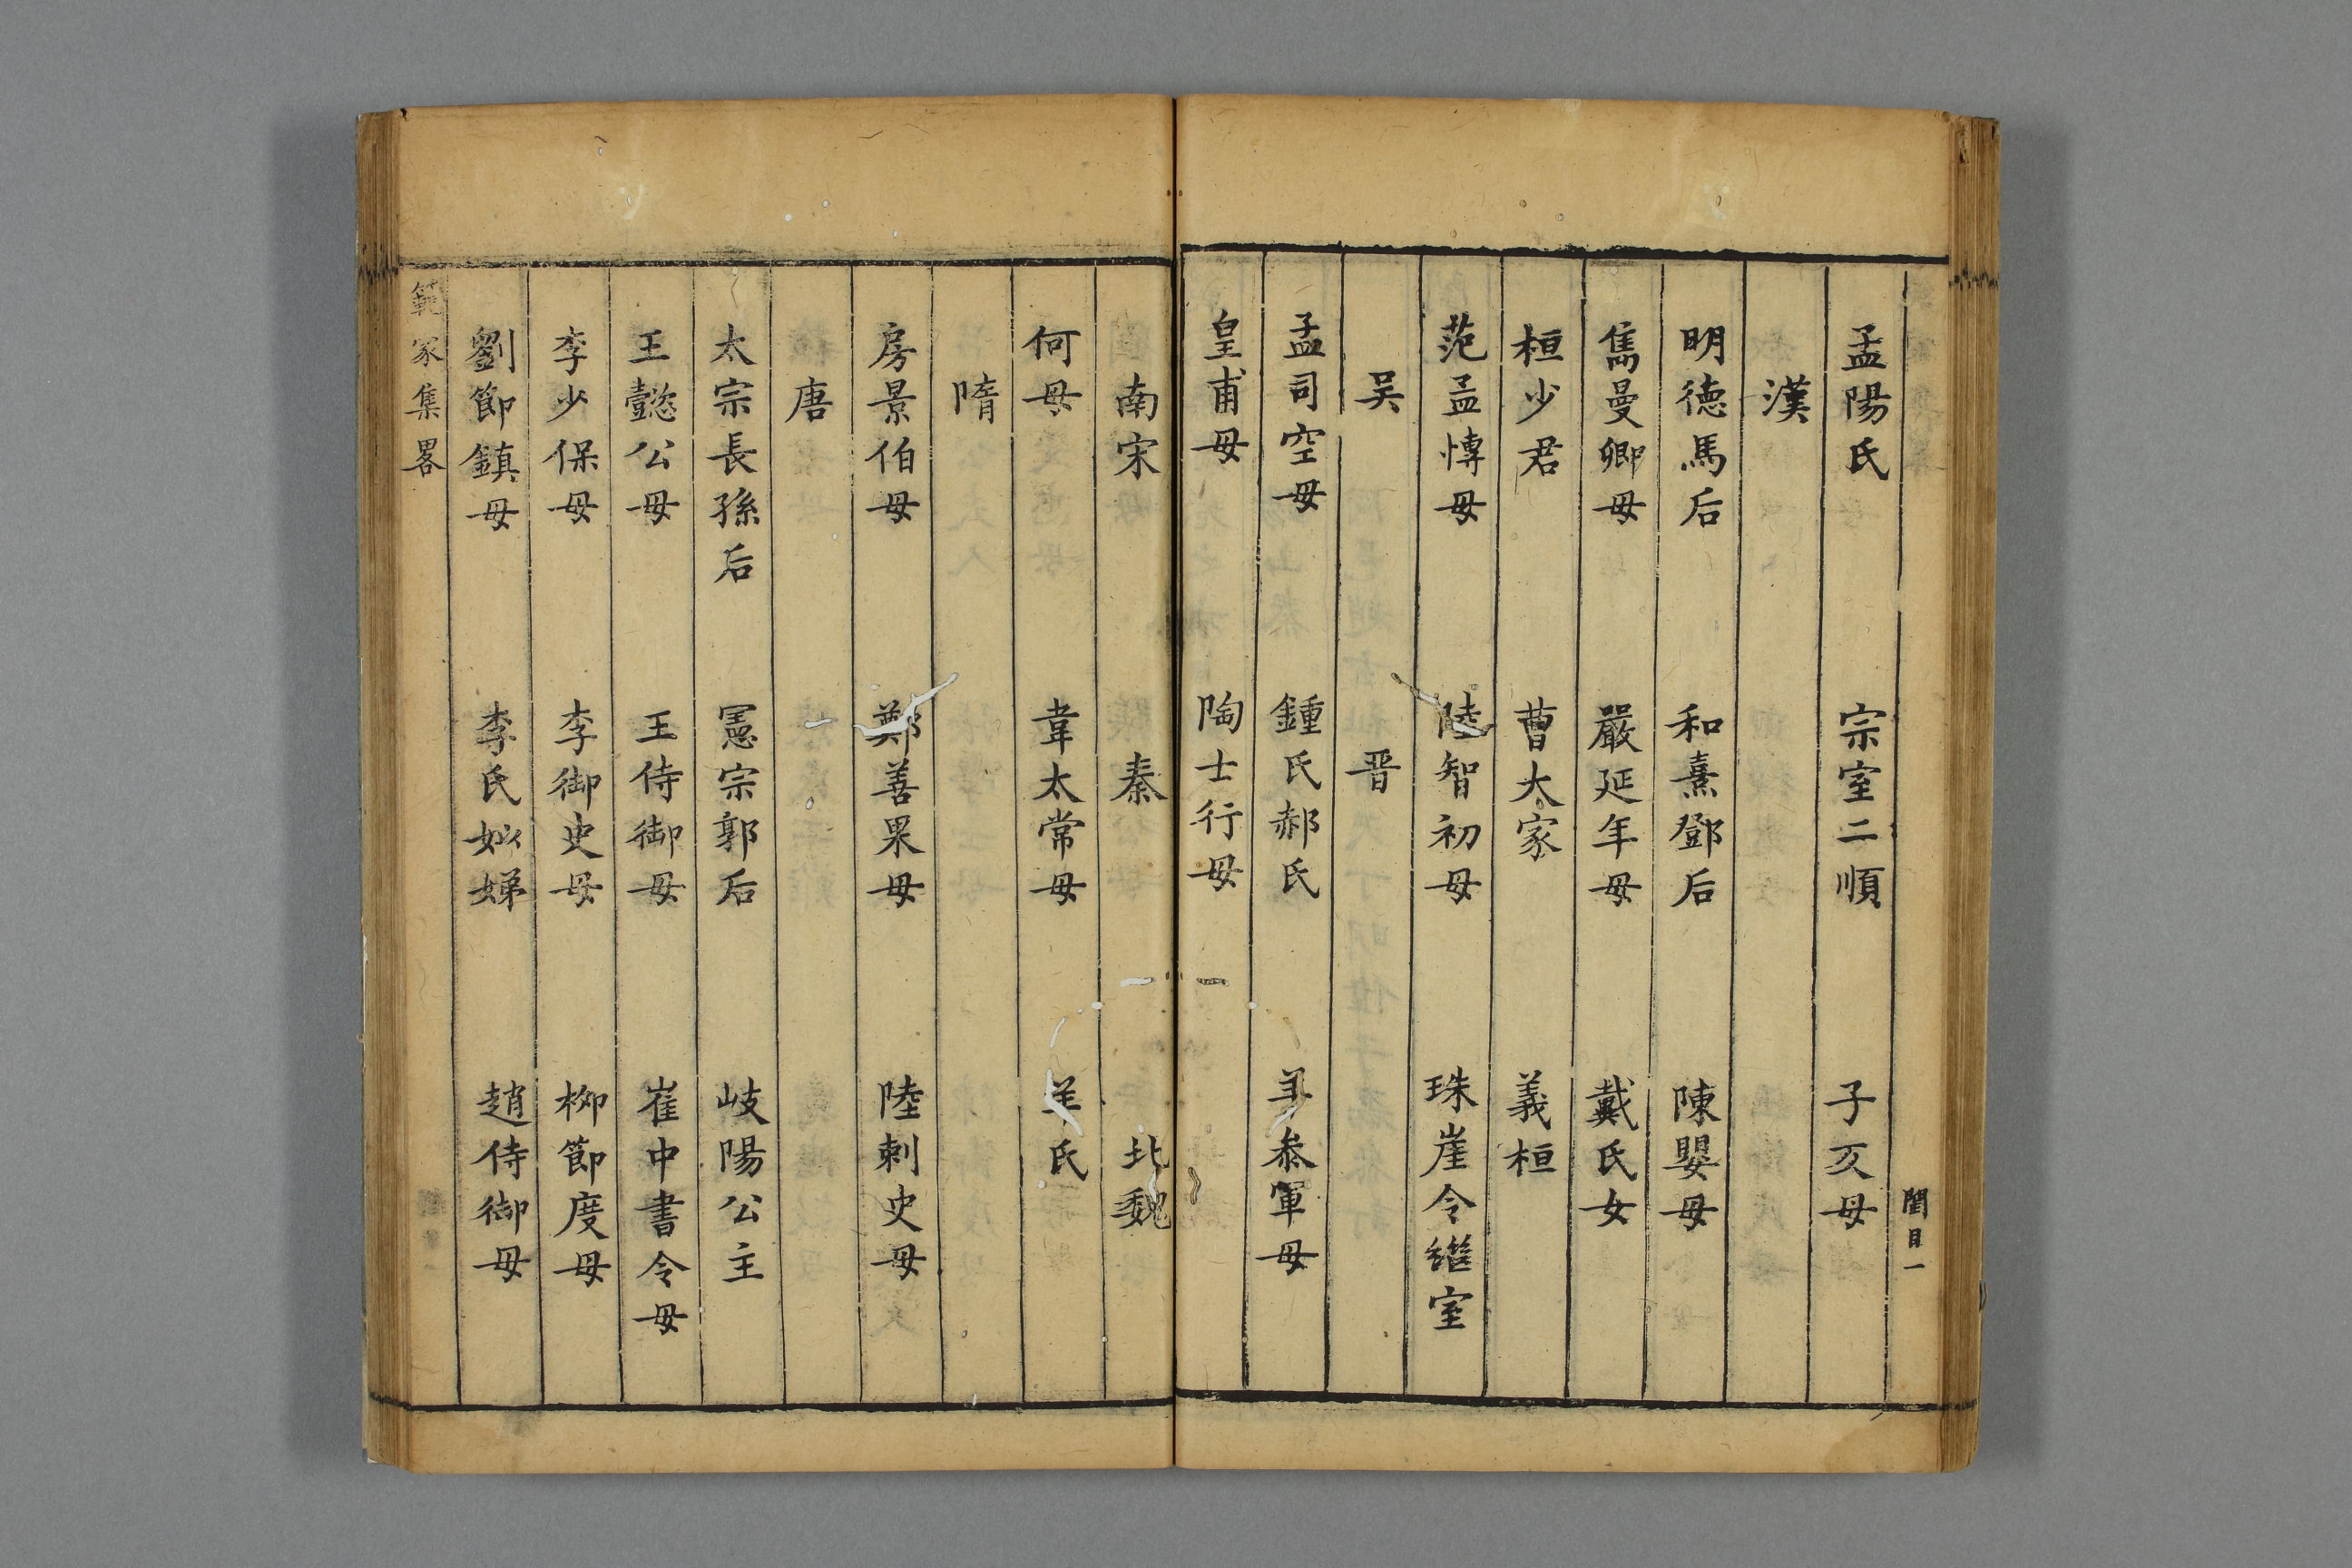 閨目一
孟陽氏 宗室二順 子亥母
漢
明德馬后 和熹鄧后 陳嬰母
雋曼卿母 嚴延年母 戴氏女
桓少君 曹大家 義桓
范孟博母 陸智初母 珠崖令繼室
吴 晋
孟司空母 鍾氏郝氏 羊叅軍母
皇甫母 陶士行母
南宋 秦 北魏
何母 韋太常母 羊氏
隋
房景伯母 鄭善果母 陸刺史母
唐
太宗長孫后 憲宗郭后 岐陽公主
王懿公母 王侍御母 崔中書令母
李少保母 李御史母 柳節度母
劉節鎮母 李氏姒娣 趙侍御母
範家集畧